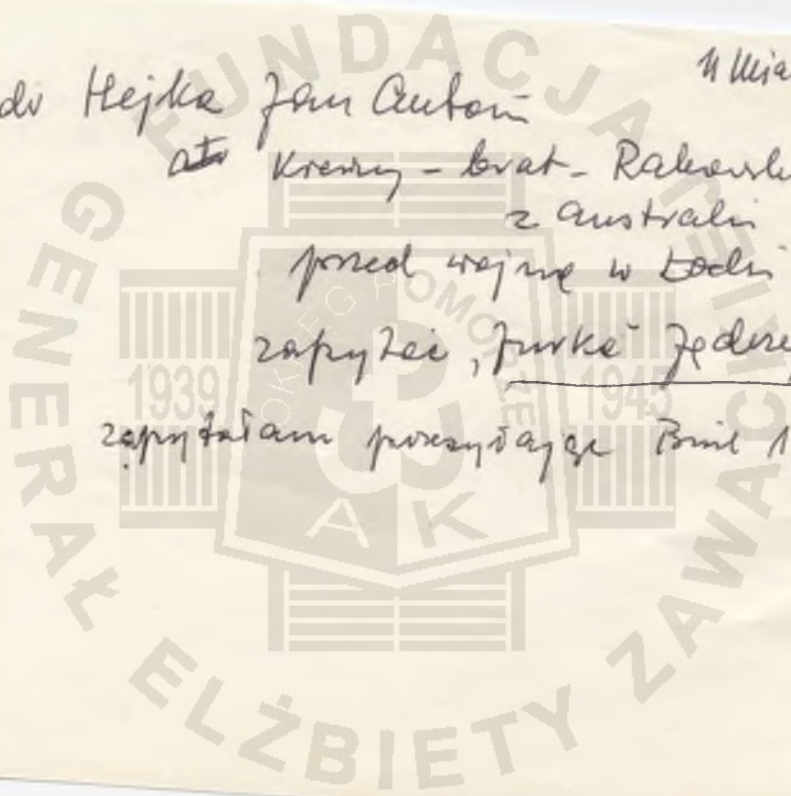 U Mia
dr Hejka Jan Antoni
Krewny - brat - Rakowsk
z Australii
przed wojną w Łodzi
zapytać „Jurka" Jędrze
zapytałam przesyłając Biul 1
FUNDACJA
GENERAŁ ELŻBIETY ZAWACKIEJ
OKRĘG POMORZE
1939
1945
AK